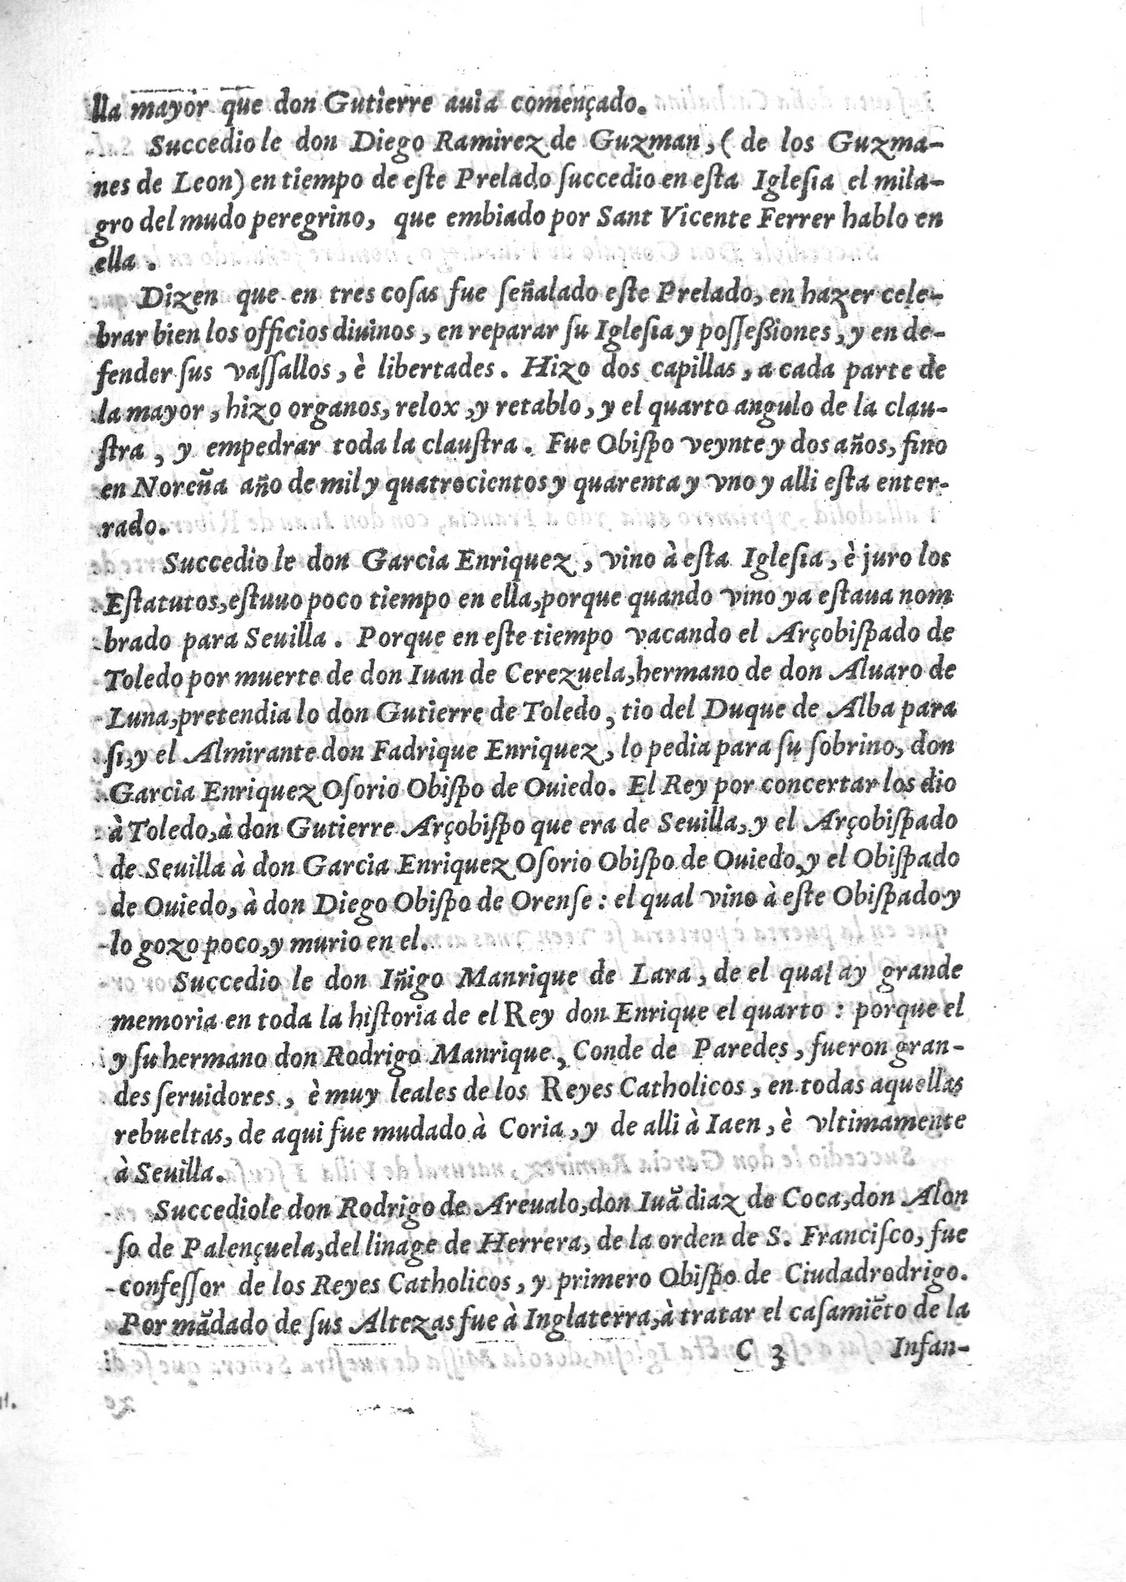 lla mayor que don Gutierre auia començado.
Succedio le don Diego Ramirez de Guzman, ( de los Guzma-
nes de Leon) en tiempo de eſte Prelado ſuccedio en eſta Igleſia el mila-
gro del mudo peregrino, que embiado por Sant Vicente Ferrer hablo en
ella .
Dizen que en tres coſas fue ſeñalado eſte Prelado, en hazer cele-
brar bien los officios diuinos , en reparar ſu Igleſia y poſſeßiones , y en de-
fender ſus vaſſallos , è libertades . Hizo dos capillas , a cada parte de
la mayor , hizo organos, relox , y retablo , y el quarto angulo de la clau-
ſtra , y empedrar toda la clauſtra . Fue Obiſpo veynte y dos años, fino
en Noreña año de mil y quatrocientos y quarenta y vno y alli eſta enter-
rado.
Succedio le don Garcia Enriquez , vino à eſta Igleſia , è juro los
Eſtatutos, eſtuuo poco tiempo en ella, porque quando vino ya eſtaua nom
brado para Seuilla . Porque en eſte tiempo vacando el Arçobiſpado de
Toledo por muerte de don Iuan de Cerezuela, hermano de don Aluaro de
Luna, pretendia lo don Gutierre de Toledo , tio del Duque de Alba para
ſi, y el Almirante don Fadrique Enriquez , lo pedia para ſu ſobrino, don
Garcia Enriquez Oſorio Obiſpo de Ouiedo. El Rey por concertar los dio
à Toledo, à don Gutierre Arçobiſpo que era de Seuilla, y el Arçobiſpado
de Seuilla à don Garcia Enriquez Oſorio Obiſpo de Ouiedo, y el Obiſpado
de Ouiedo, à don Diego Obiſpo de Orenſe : el qual vino à eſte Obiſpado y
lo gozo poco, y murio en el.
Succedio le don Iñigo Manrique de Lara , de el qual ay grande
memoria en toda la hiſtoria de el Rey don Enrique el quarto : porque el
y ſu hermano don Rodrigo Manrique , Conde de Paredes , fueron gran-
des ſeruidores , è muy leales de los Reyes Catholicos , en todas aquellas
rebueltas, de aqui fue mudado à Coria , y de alli à Iaen , è vltimamente
à Seuilla.
Succediole don Rodrigo de Areualo, don Iuã diaz de Coca, don Alon
ſo de Palençuela, del linage de Herrera, de la orden de S. Franciſco, fue
confeſſor de los Reyes Catholicos , y primero Obiſpo de Ciudadrodrigo.
Por mãdado de ſus Altezas fue à Inglaterra, à tratar el caſamiẽto de la
C 3 Infan-